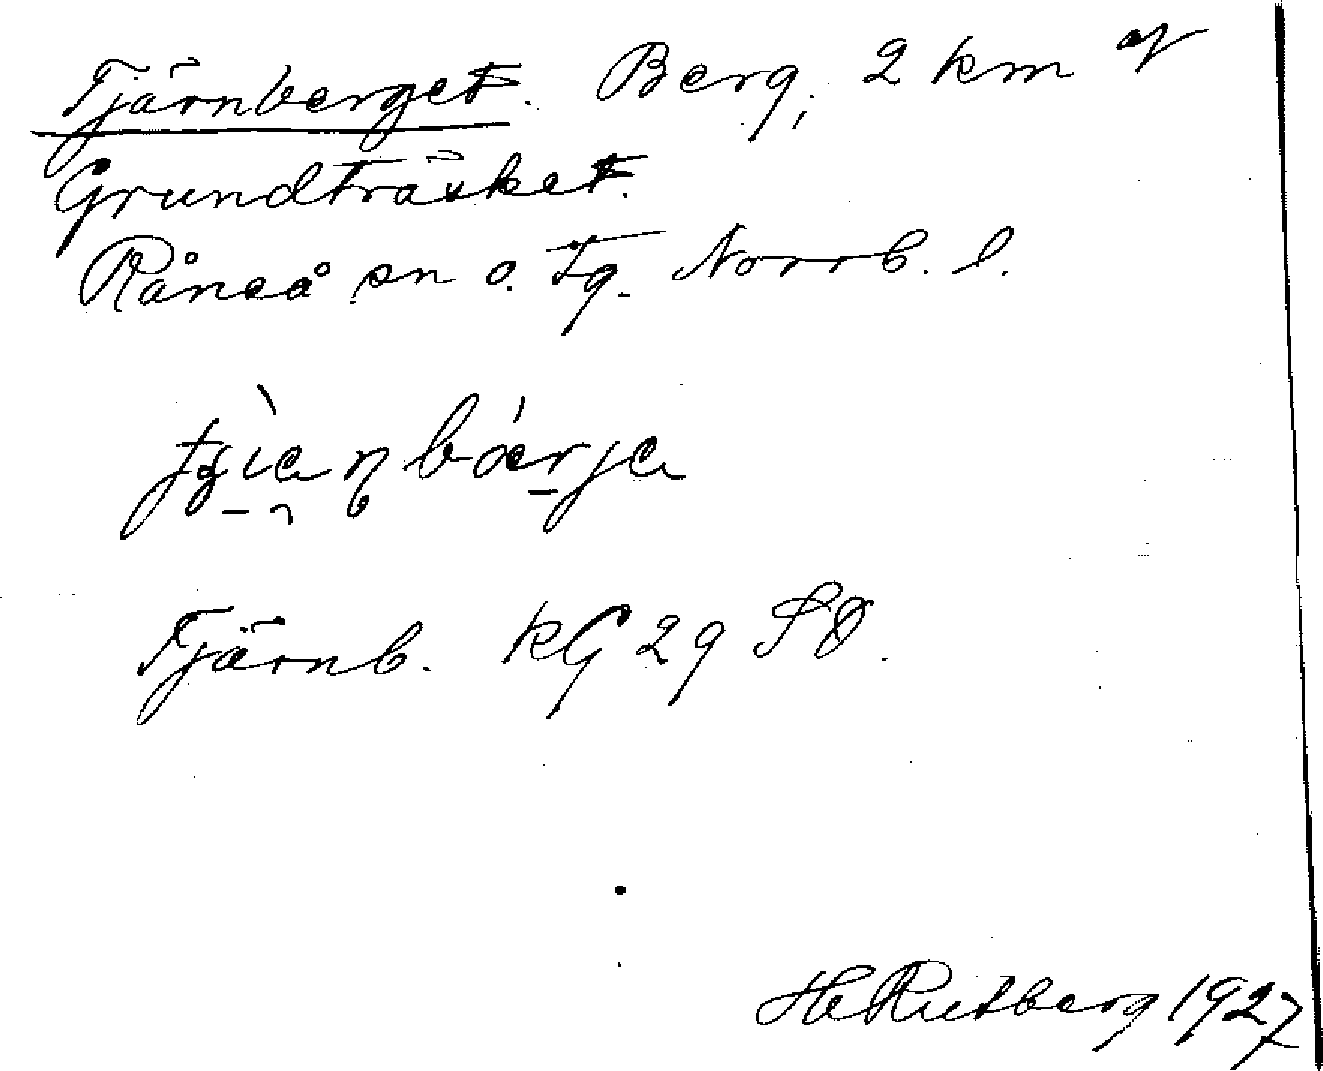 Tjärnberget. Berg, 2 km
Grundträsket.
Råneå sn o. Tg. Norrb. l.
Tjärnb. KG 29 SO.
H Rutberg 1927